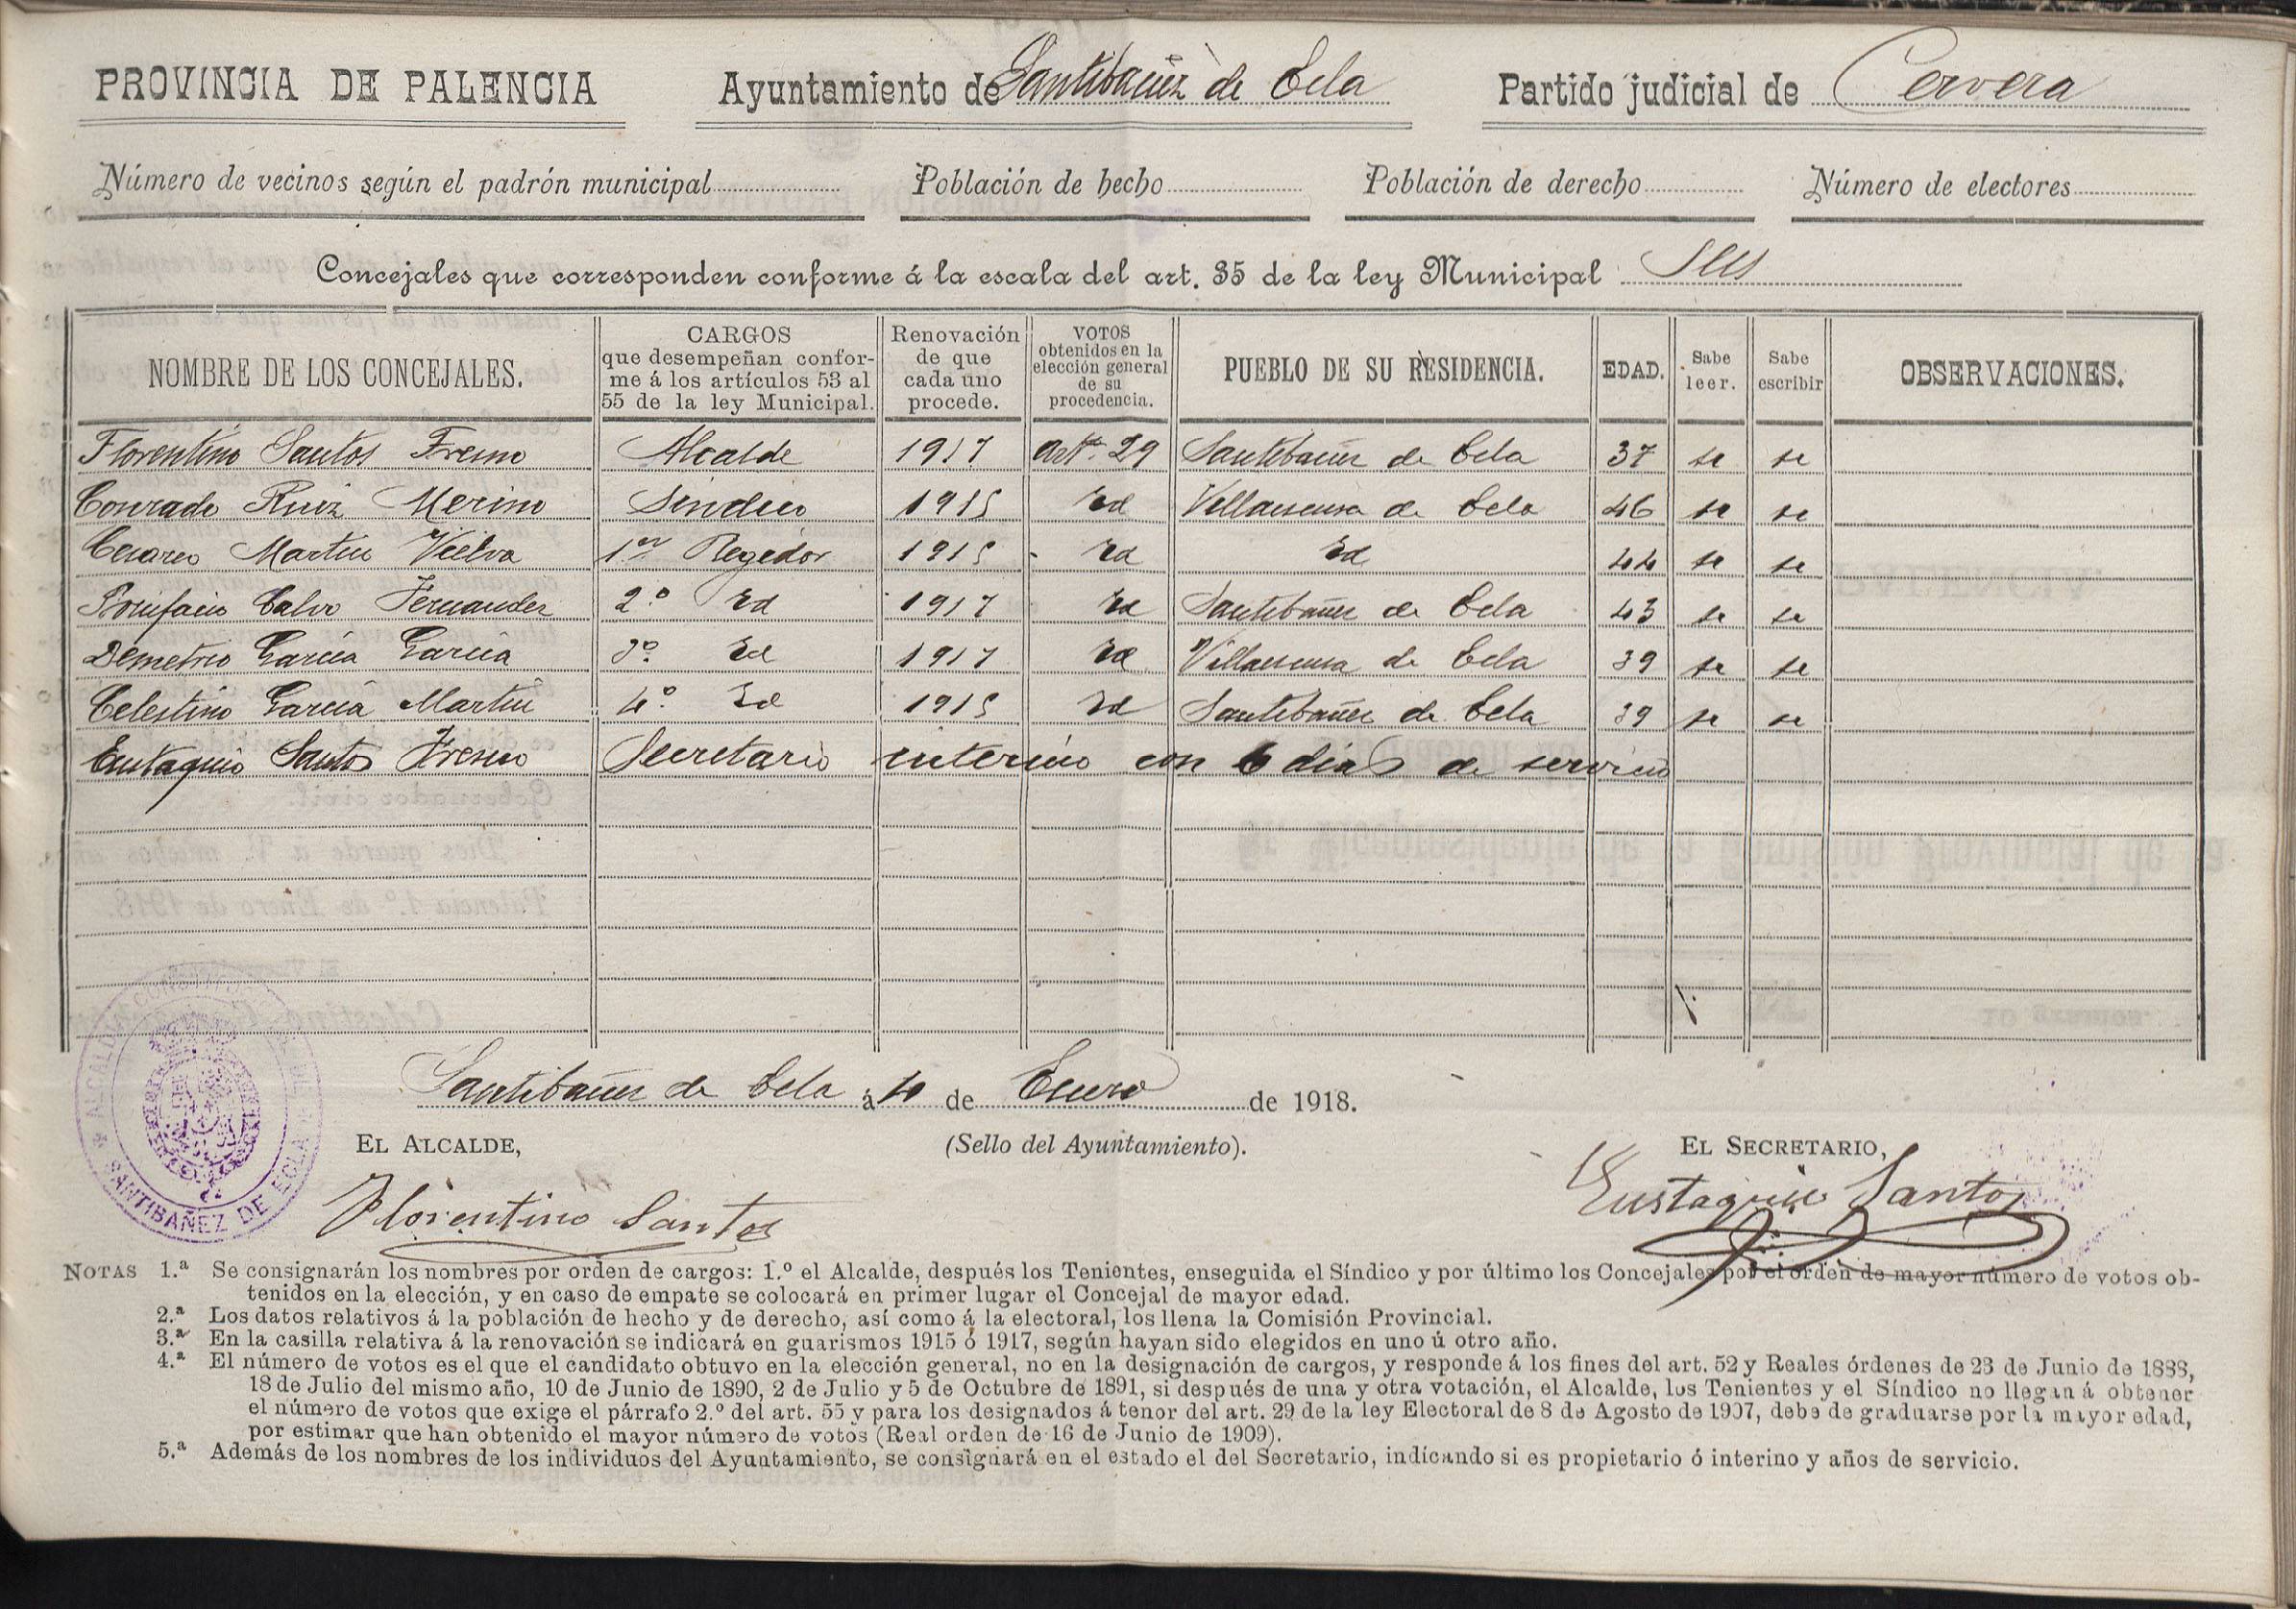 PROVINCIA DE PALENCIA Ayuntamiento de Santibañez de Ecla Partido judicial de Cervera
Número de vecinos según el padrón municipal Población de hecho Población de derecho Número de electores
Concejales que corresponden conforme á la escala del art. 35 de la ley Municipal Seis
NOMBRE DE LOS CONCEJALES. CARGOS que desempeñan conforme á los artículos 53 al 55 de la ley Municipal. Renovación de que cada uno procede. VOTOS obtenidos en la elección general de su procedencia. PUEBLO DE SU RESIDENCIA. EDAD. Sabe leer. Sabe escribir OBSERVACIONES.
Florentino Santos Fresno Alcalde 1917 Artº 29 Santibañez de Ecla 37 se se
Conrado Ruiz Merino Sindico 1915 Id Villaescusa de Ecla 46 se se
Cesareo Martin Vielva 1er Regedor 1915 Id Id 44 se se
Bonifacio Calvo Fernandez 2º Id 1917 Id Santibañez de Ecla 43 se se
Demetrio Garcia Garcia 3º Id 1917 Id Villaescusa de Ecla 39 se se
Celestino Garcia Martin 4º Id 1915 Id Santibañez de Ecla 39 se se
Eustaquio Santos Fresno Secretario interino con 6 dias de servicio
Santibañez de Ecla á 4 de Enero de 1918.
EL ALCALDE, (Sello del Ayuntamiento). EL SECRETARIO,
Florentino Santos Eustaquio Santos
ALCALDIA CONSTITUCIONAL
SANTIBAÑEZ DE ECLA
NOTAS 1.ª Se consignarán los nombres por orden de cargos: 1.º el Alcalde, después los Tenientes, enseguida el Síndico y por último los Concejales por el orden de mayor número de votos ob-
tenidos en la elección, y en caso de empate se colocará en primer lugar el Concejal de mayor edad.
2.ª Los datos relativos á la población de hecho y de derecho, así como á la electoral, los llena la Comisión Provincial.
3.ª En la casilla relativa á la renovación se indicará en guarismos 1915 ó 1917, según hayan sido elegidos en uno ú otro año.
4.ª El número de votos es el que el candidato obtuvo en la elección general, no en la designación de cargos, y responde á los fines del art. 52 y Reales órdenes de 23 de Junio de 1888,
18 de Julio del mismo año, 10 de Junio de 1890, 2 de Julio y 5 de Octubre de 1891, si después de una y otra votación, el Alcalde, los Tenientes y el Síndico no llegan á obtener
el número de votos que exige el párrafo 2.º del art. 55 y para los designados á tenor del art. 29 de la ley Electoral de 8 de Agosto de 1907, debe de graduarse por la mayor edad,
por estimar que han obtenido el mayor número de votos (Real orden de 16 de Junio de 1909).
5.ª Además de los nombres de los individuos del Ayuntamiento, se consignará en el estado el del Secretario, indicando si es propietario ó interino y años de servicio.